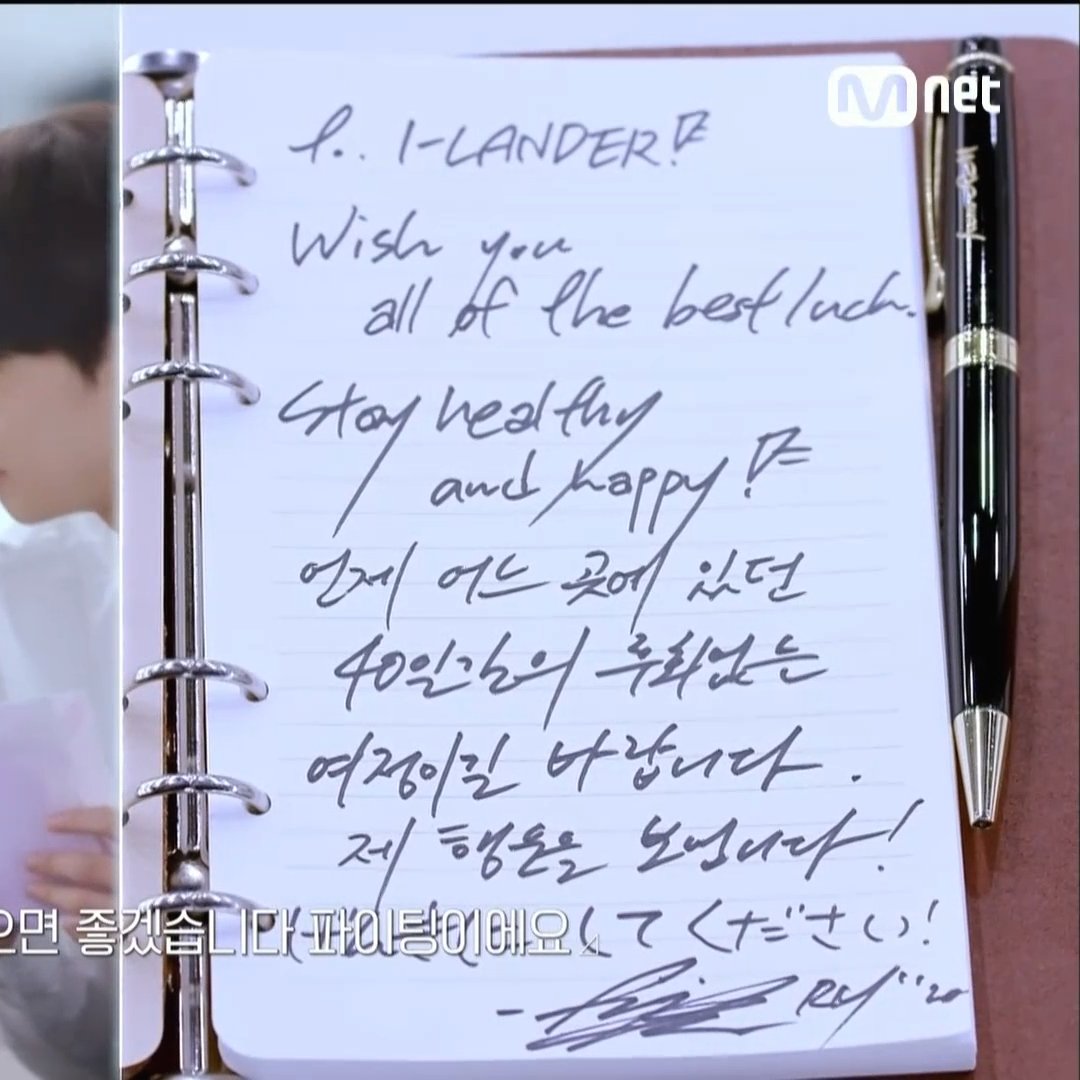 Mnet
I-LANDER!
Wish you
all of the best luck.
Stay healthy
and happy!
언제 어느 곳에 있던
40일간의 후회없는
여정이길 바랍니다.
제 행운을 보냅니다!
してください!
으면 좋겠습니다 파이팅이에요